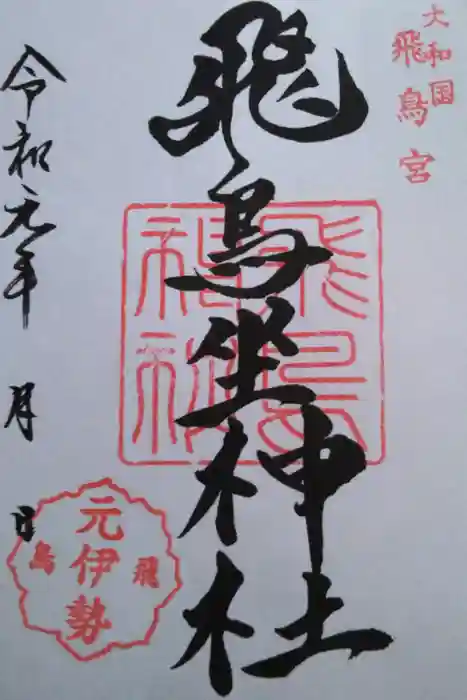 大和国
飛鳥宮
飛鳥坐神社
飛鳥
神社
令和元年 月 日
元伊勢
飛
鳥